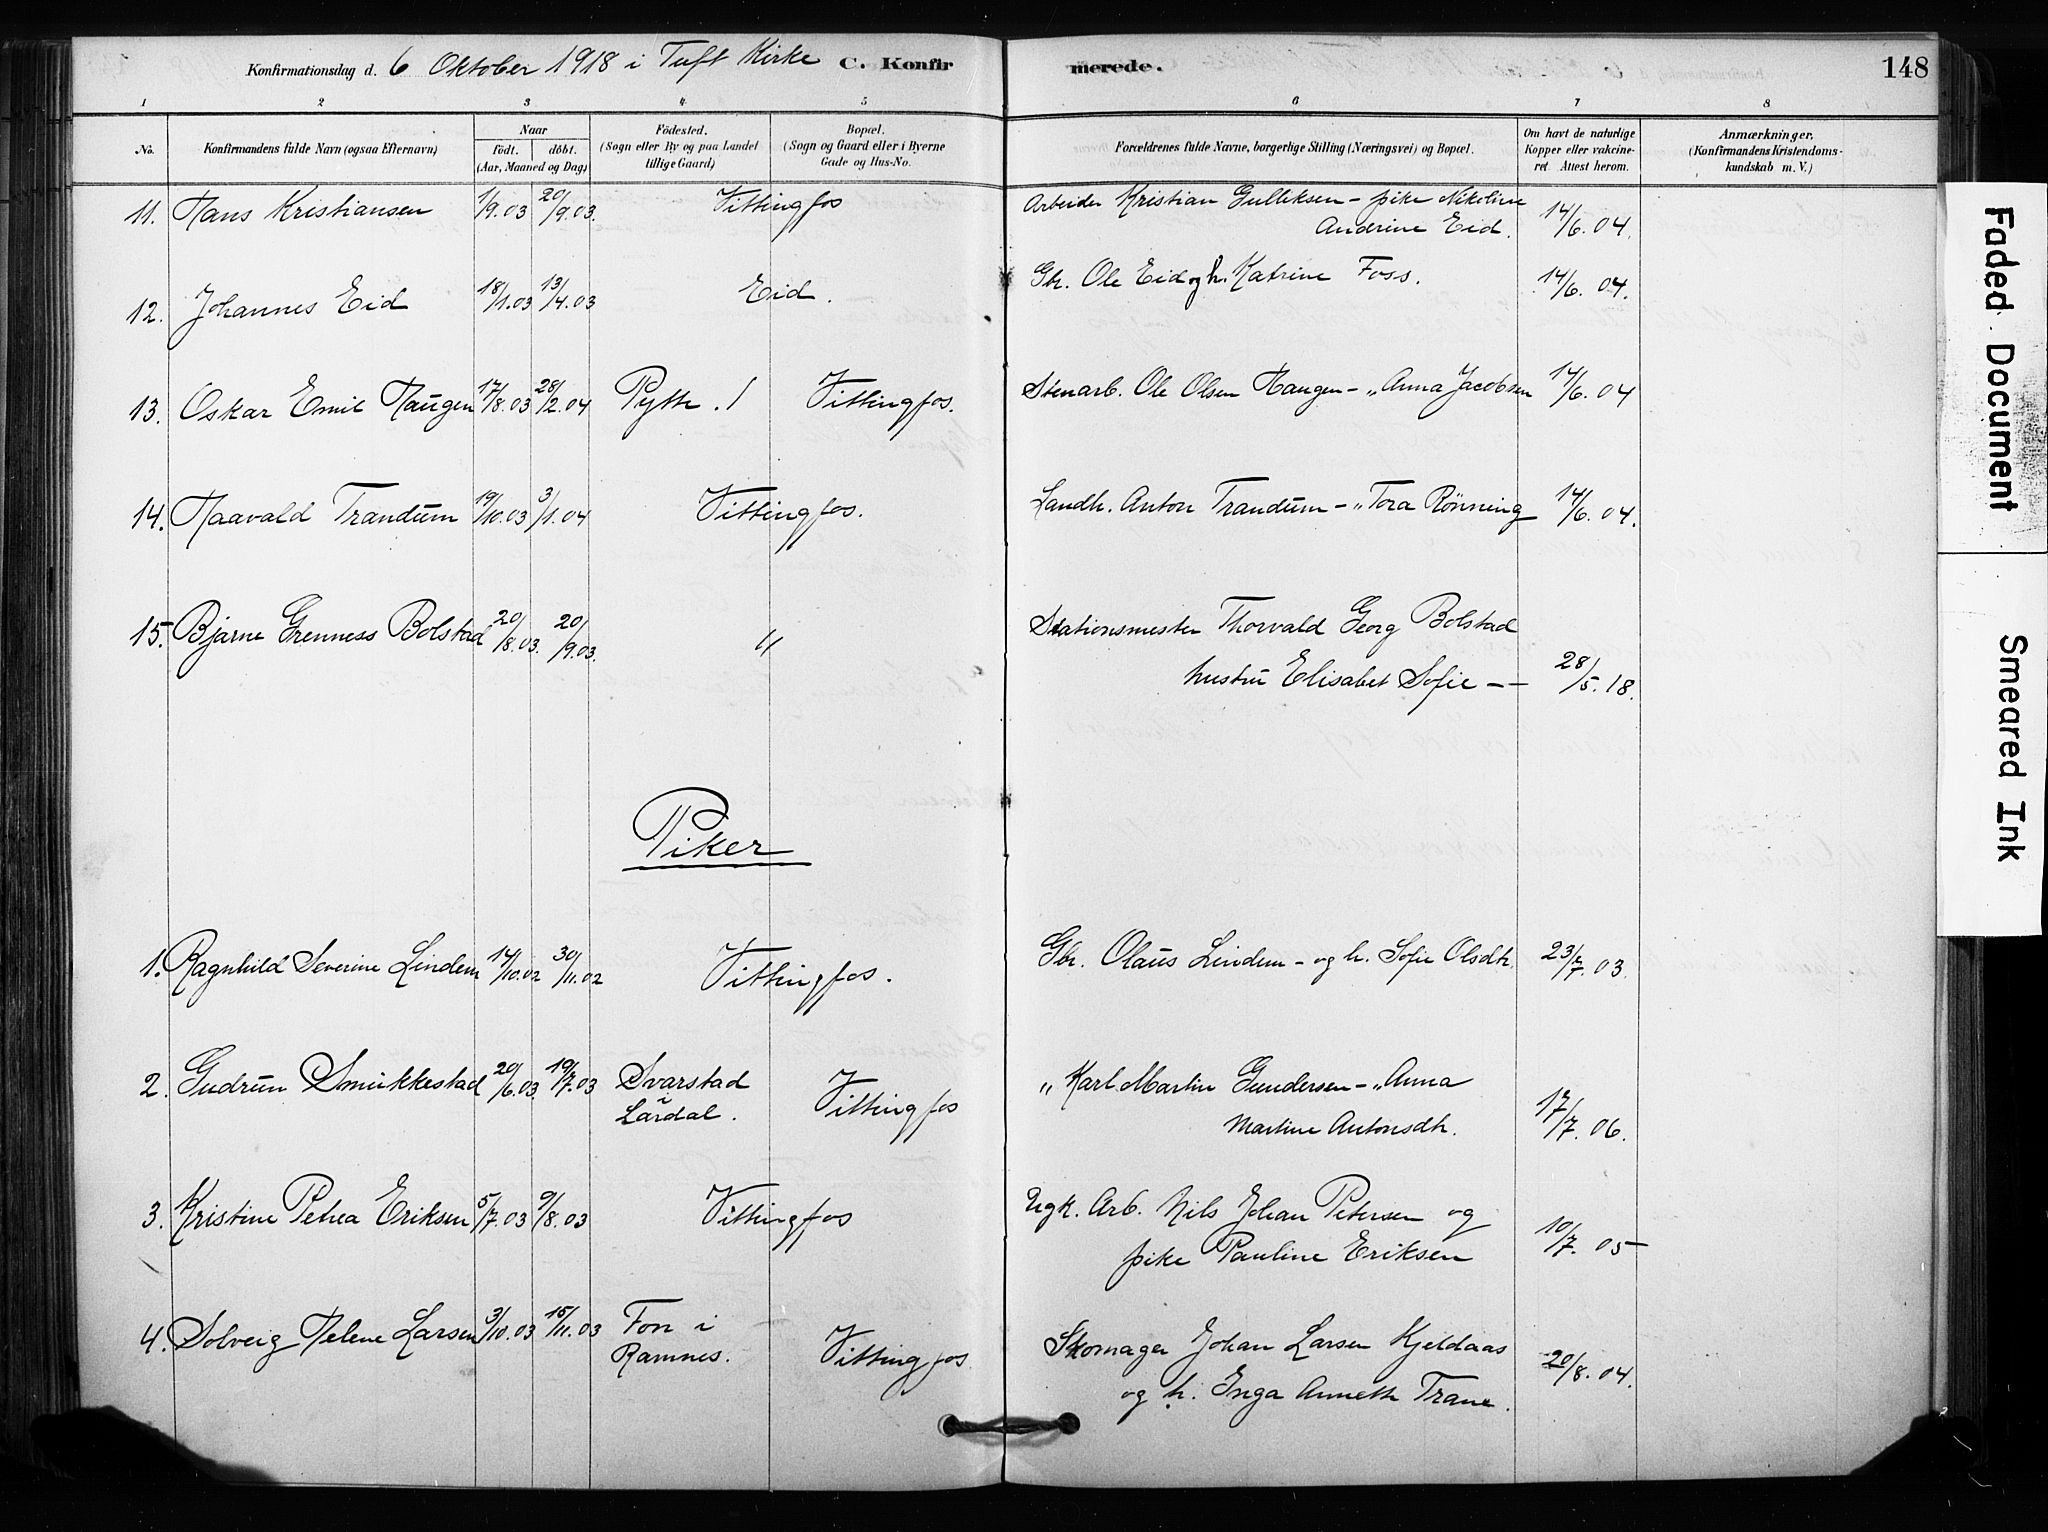 Konfirmationsdag d. 6 Oktober 1918 i Tuft Kirke C. Konfir merede. 148
1 2 3 4 5 6 7 8
No. Konfirmandens fulde Navn (ogsaa Efternavn) Naar Födt. döbt. (Aar, Maaned og Dag) Födested. (Sogn eller By og paa Landet tillige Gaard) Bopæl. (Sogn og Gaard eller i Byerne Gade og Hus-No.) Forældrenes fulde Navne, borgerlige Stilling (Næringsvei) og Bopæl. Om havt de naturlige Kopper eller vakcineret Attest herom. Anmærkninger, (Konfirmandens Kristendomskundskab m. V.)
11. Hans Kristiansen 1/9.03 20/9.03. Vittingfos Arbeider Kristian Gulliksen – pike Nikoline 14/6.04.
Andrine Eid.
12. Johannes Eid 18/1.03 13/4.03 Eid. Gbr. Ole Eid og h. Katrine Foss. 14/6.04.
13. Oskar Emil Haugen 17/8.03 28/2.04 Pytte. / Vittingfos. Stenarb. Ole Olsen Haugen – „ Anna Jacobsen 14/6.04
14. Haavald Trandum 19/10.03 3/1.04 Vittingfos. Landh. Anton Trandum – „ Tora Rönning 14/6.04.
15. Bjarne Grenness Bolstad 20/8.03. 20/9.03. „ Stationsmester Thorvald Georg Bolstad
hustru Elisabet Sofie – – 28/5.18.
Piker
1. Ragnhild Severine Lindem 14/10.02 30/11.02 Vittingfos. Gbr. Olaus Lindem – og h. Sofie Olsdtr. 23/7.03.
2. Gudrun Smukkestad 20/6.03. 19/7.03 Svarstad i Lardal. Vittingfos „ Karl Martin Gundersen – „ Anna
Martine Antonsdtr. 17/7.06.
3. Kristine Petrea Eriksen 5/7.03 9/8.03 Vittingfos Ugk. Arb. Nils Johan Petersen og
pike Pauline Eriksen 10/7.05
4. Solveig Helene Larsen 3/10.03 15/11.03 Fon i Ramnes. Vittingfos. Skomager Johan Larsen Kjeldaas
og h. Inga Annette Trane. 20/8.04.
Faded Document
Smeared Ink